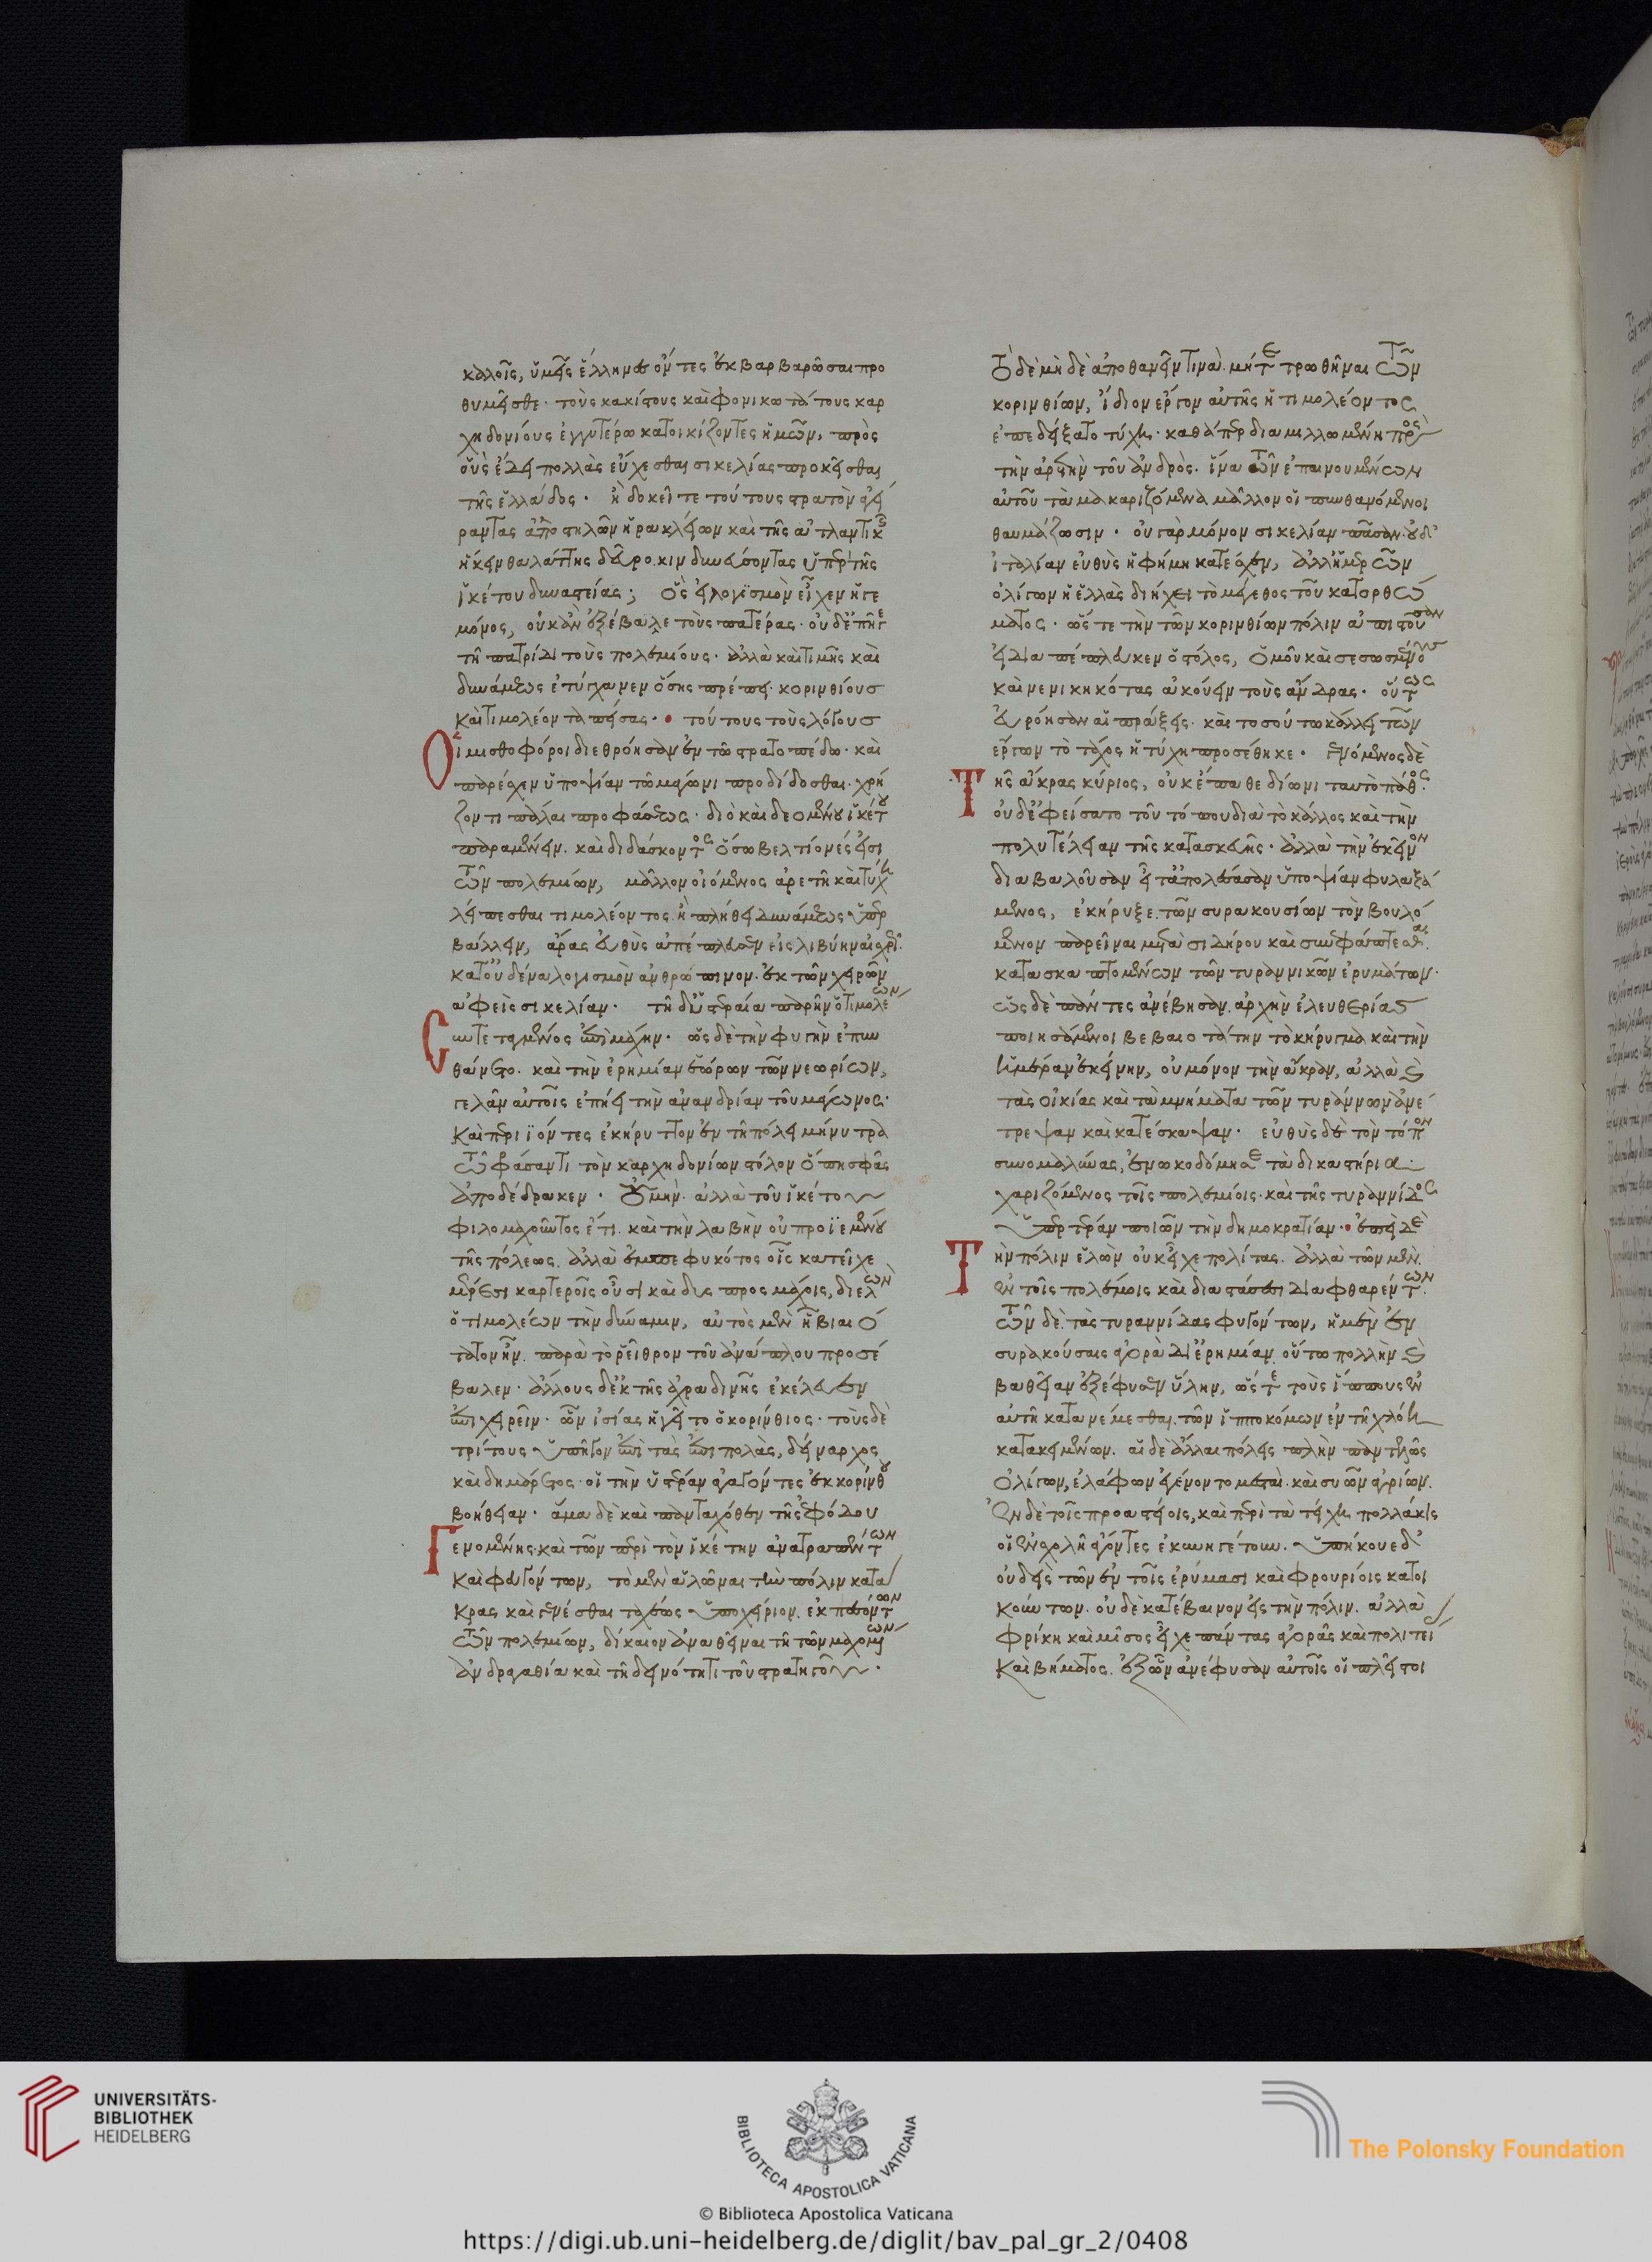 καλοῖς, ὑμεῖς ἕλληνες ὄντες ἐκβαρβαρῶσαι προ
θυμεῖσθε· τοὺς κακίστους καὶ φονικωτάτους καρ
χηδονίους ἐγγυτέρω κατοικίζοντες ἡμῶν, πρὸς
οὓς ἔδει πολλὰς εὔχεσθαι σικελίας προκεῖσθαι
τῆς ἑλλάδος· ἢ δοκεῖτε τούτους στρατὸν ἀγεί
ραντας ἀπὸ στηλῶν ἡρακλείων καὶ τῆς ἀτλαντικῆς
ἥκειν θαλάττης δεῦρο κινδυνεύσοντας ὑπὲρ τῆς
ἱκέτου δυναστείας; ὃς εἰ λογϊσμὸν εἶχεν ἡγε
μόνος, οὐκ ἂν ἐξέβαλε τοὺς πατέρας· οὐδ' ἐπῆγε
τῇ πατρίδι τοὺς πολεμίους· ἀλλὰ καὶ τιμῆς καὶ
δυνάμεως ἐτύγχανεν ὅσης πρέπει κορινθίους
καὶ τιμολέοντα πείσας· τούτους τοὺς λόγους
Οἱ μισθοφόροι διεθρόησαν ἐν τῷ στρατοπέδω· καὶ
παρέσχεν ὑποψίαν τῶ μάγωνι προδίδοσθαι· χρή
ζοντι πάλαι προφάσεως· διὸ καὶ δεομένου ἱκέτου
παραμένειν. καὶ διδάσκοντος ὅσω βελτίονές εἰσι
τῶν πολεμίων, μᾶλλον οἰόμενος ἀρετῆ καὶ τύχη
λείπεσθαι τιμολέοντος ἢ πλήθει δυνάμεως ὑπερ
βάλλειν, ἄρας εὐθὺς ἀπέπλευσεν εἰς λιβύην αἰσχρῶς
κατ' οὐδένα λογισμὸν ἀνθρώπινον. ἐκ τῶν χειρῶν
ἀφεὶς σικελίαν· τῆ δ' ὑστεραία παρῆν ὁ τιμολέων
Συντεταγμένος ἐπὶ μάχην· ὡς δὲ τὴν φυγὴν ἐπυν
θάνοντο. καὶ τὴν ἐρημίαν ἑώρων τῶν νεωρίων,
γελᾶν αὐτοῖς ἐπήει τὴν ἀνανδρίαν τοῦ μάγωνος·
καὶ περιϊόντες ἐκήρυττον ἐν τῆ πόλει μήνυτρα
τῶ φράσαντι τὸν καρχηδονίων στόλον ὅπη σφᾶς
ἀποδέδρακεν· οὐ μὴν ἀλλὰ τοῦ ἱκέτου
φιλομαχοῦντος ἔτι. καὶ τὴν λαβὴν οὐ προϊεμένου
τῆς πόλεως. ἀλλὰ ἐμπεφυκότος οἷς κατεῖχε
μέρεσι καρτεροῖς οὖσι καὶ δυσπροσμάχοις, διελὼν
ὁ τιμολέων τὴν δύναμιν, αὐτὸς μὲν ἧ βιαιό
τατον ἦν. παρὰ τὸ ῥεῖθρον τοῦ ἀνάπλου προσέ
βαλεν· ἄλλους δ' ἐκ τῆς ἀχραδινῆς ἐκέλευεν
ἐπιχειρεῖν· ὧν ἰσίας ἡγεῖτο ὁ κορίνθιος· τοὺς δὲ
τρίτους ἐπῆγον ἐπὶ τὰς ἐπιπολὰς, δείναρχος
καὶ δημάρετος· οἱ τὴν ὑστέραν ἀγαγόντες ἐκ κορίνθου
βοήθειαν· ἅμα δὲ καὶ πανταχόθεν τῆς ἐφόδου
Γενομένης· καὶ τῶν περὶ τὸν ἱκέτην ἀνατραπέντων
καὶ φευγόντων, τὸ μὲν ἁλῶναι τὴν πόλιν κατα
κρας καὶ γενέσθαι ταχέως ὑποχείριον. ἐκπεσόντων
τῶν πολεμίων, δίκαιον ἀναθεῖναι τῆ τῶν μαχομένων
ἀνδραγαθία καὶ τῆ δεινότητι τοῦ στρατηγοῦ·
Τὸ δὲ μὴ δὲ ἀποθανεῖν τινα. μήτε τρωθῆναι τῶν
κορινθίων, ἴδιον ἔργον αὐτῆς ἡ τιμολέοντος
ἐπεδείξατο τύχη· καθάπερ διαμιλλωμένη πρὸς
τὴν ἀρετὴν τοῦ ἀνδρὸς. ἵνα τῶν ἐπαινουμένων
αὐτοῦ τὰ μακαριζόμενα μᾶλλον οἱ πυνθανόμενοι
θαυμάζωσιν· οὐ γὰρ μόνον σικελίαν πᾶσαν. οὐδ'
ἰταλίαν εὐθὺς ἡ φήμη κατέσχεν, ἀλλ' ἡμερῶν
ὀλίγων ἡ ἑλλὰς διήχει τὸ μέγεθος τοῦ κατορθώ
ματος· ὥστε τὴν τῶν κορινθίων πόλιν ἀπιστοῦσαν
εἰ διαπέπλευκεν ὁ στόλος, ὁμοῦ καὶ σεσωσμένους
καὶ νενικηκότας ἀκούειν τοὺς ἄνδρας· οὕτως
εὐρόησαν αἱ πράξεις· καὶ τοσούτω κάλλει τῶν
ἔργων τὸ τάχος ἡ τύχη προσέθηκε· γενόμενος δὲ
Τῆς ἄκρας κύριος, οὐκ ἔπαθε δίωνι ταυτὸ πάθος·
οὐδ' ἐφείσατο τοῦ τόπου διὰ τὸ κάλλος καὶ τὴν
πολυτέλειαν τῆς κατασκευῆς· ἀλλὰ τὴν ἐκεῖνον
διαβαλοῦσαν εἶτ' ἀπολέσασαν ὑποψίαν φυλαξά
μενος, ἐκήρυξε. τῶν συρακουσίων τὸν βουλό
μενον παρεῖναι μετὰ σιδήρου καὶ συνεφάπτεσθαι.
κατασκαπτομένων τῶν τυραννικῶν ἐρυμάτων·
ὡς δὲ πάντες ἀνέβησαν. ἀρχὴν ἐλευθερίας
ποιησάμενοι βεβαιοτάτην τὸ κήρυγμα καὶ τὴν
ἡμέραν ἐκείνην, οὐ μόνον τὴν ἄκραν, ἀλλὰ καὶ
τὰς οἰκίας καὶ τὰ μνήματα τῶν τυράννων ἀνέ
τρεψαν καὶ κατέσκαψαν· εὐθὺς δὲ τὸν τόπον
συνομαλύνας, ἐνωκοδόμησε τὰ δικαστήρια·
χαριζόμενος τοῖς πολεμίοις· καὶ τῆς τυραννίδος
ὑπερτέραν ποιῶν τὴν δημοκρατίαν· ἐπεὶ δὲ
Τὴν πόλιν ἑλὼν οὐκ εἶχε πολίτας. ἀλλὰ τῶν μὲν.
ἐν τοῖς πολέμοις καὶ διαστάσεσι διαφθαρέντων.
τῶν δὲ. τὰς τυραννίδας φυγόντων, ἡ μὲν ἐν
συρακούσαις ἀγορὰ δι' ἐρημίαν οὕτω πολλὴν καὶ
βαθεῖαν ἐξέφυσεν ὕλην, ὥστε τοὺς ἵππους ἐν
αὐτῆ κατανέμεσθαι. τῶν ἱπποκόμων ἐν τῆ χλόη
κατακειμένων. αἱ δὲ ἄλλαι πόλεις πλὴν παντελῶς
ὀλίγων, ἐλάφων ἐγένοντο μεσταὶ. καὶ συῶν ἀγρίων.
ἐν δὲ τοῖς προαστείοις, καὶ περὶ τὰ τείχη πολλάκις
οἱ σχολὴν ἄγοντες ἐκυνηγέτουν. ὑπήκουε δ'
οὐδεὶς τῶν ἐν τοῖς ἐρύμασι καὶ φρουρίοις κατοι
κούντων. οὐδὲ κατέβαινον εἰς τὴν πόλιν. ἀλλὰ
φρίκη καὶ μῖσος εἶχε πάντας ἀγορᾶς καὶ πολιτεί
καὶ βήματος. ἐξ ὧν ἀνέφυσαν αὐτοῖς οἱ πλεῖστοι
UNIVERSITÄTS-
BIBLIOTHEK
HEIDELBERG
BIBLIOTECA APOSTOLICA VATICANA
The Polonsky Foundation
© Biblioteca Apostolica Vaticana
https://digi.ub.uni-heidelberg.de/diglit/bav_pal_gr_2/0408